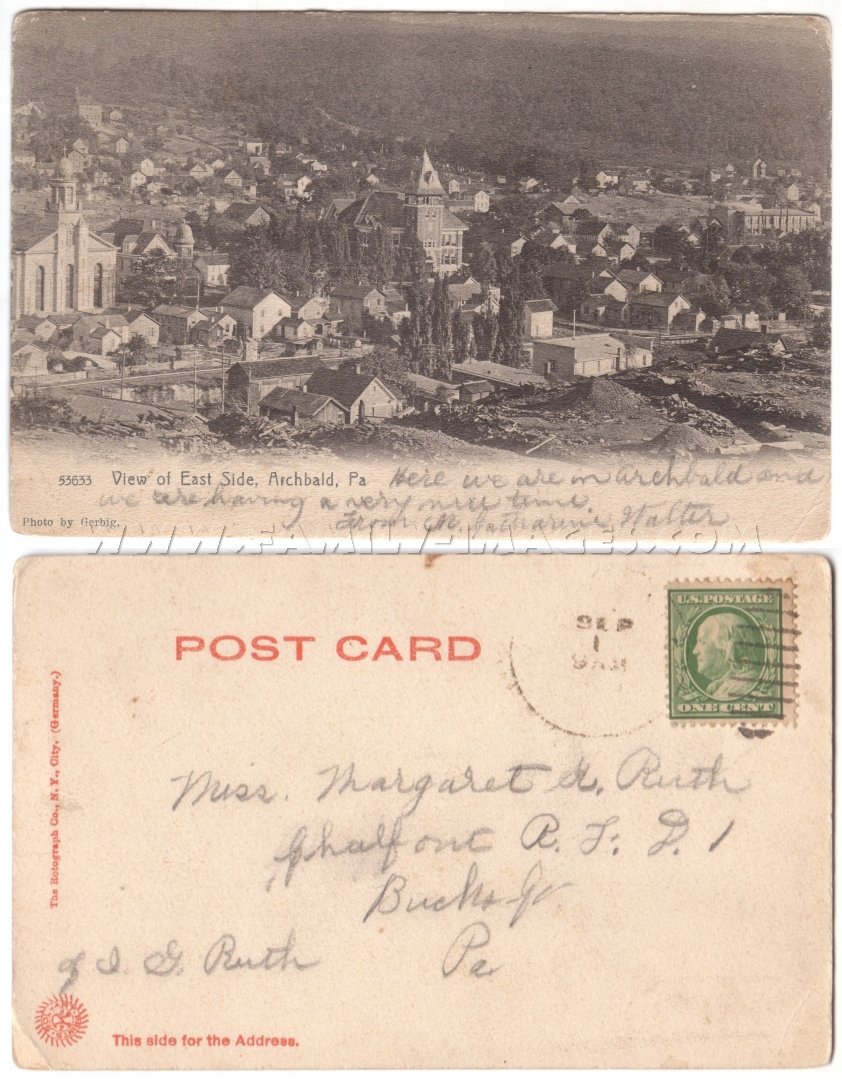 53633 View of East Side, Archbald, Pa Here we are in Archbald and
we are having a very nice time
From M. Katharine Walter
Photo by Gerbig.
WWW.FAMILY-IMAGES.COM
POST CARD
SEP
1
9 AM
U.S. POSTAGE
ONE CENT
The Rotograph Co., N. Y., City. (Germany.)
Miss. Margaret R. Ruth
Chalfont R. F. D. 1
Bucks Co.
Pa
I. G. Ruth
This side for the Address.